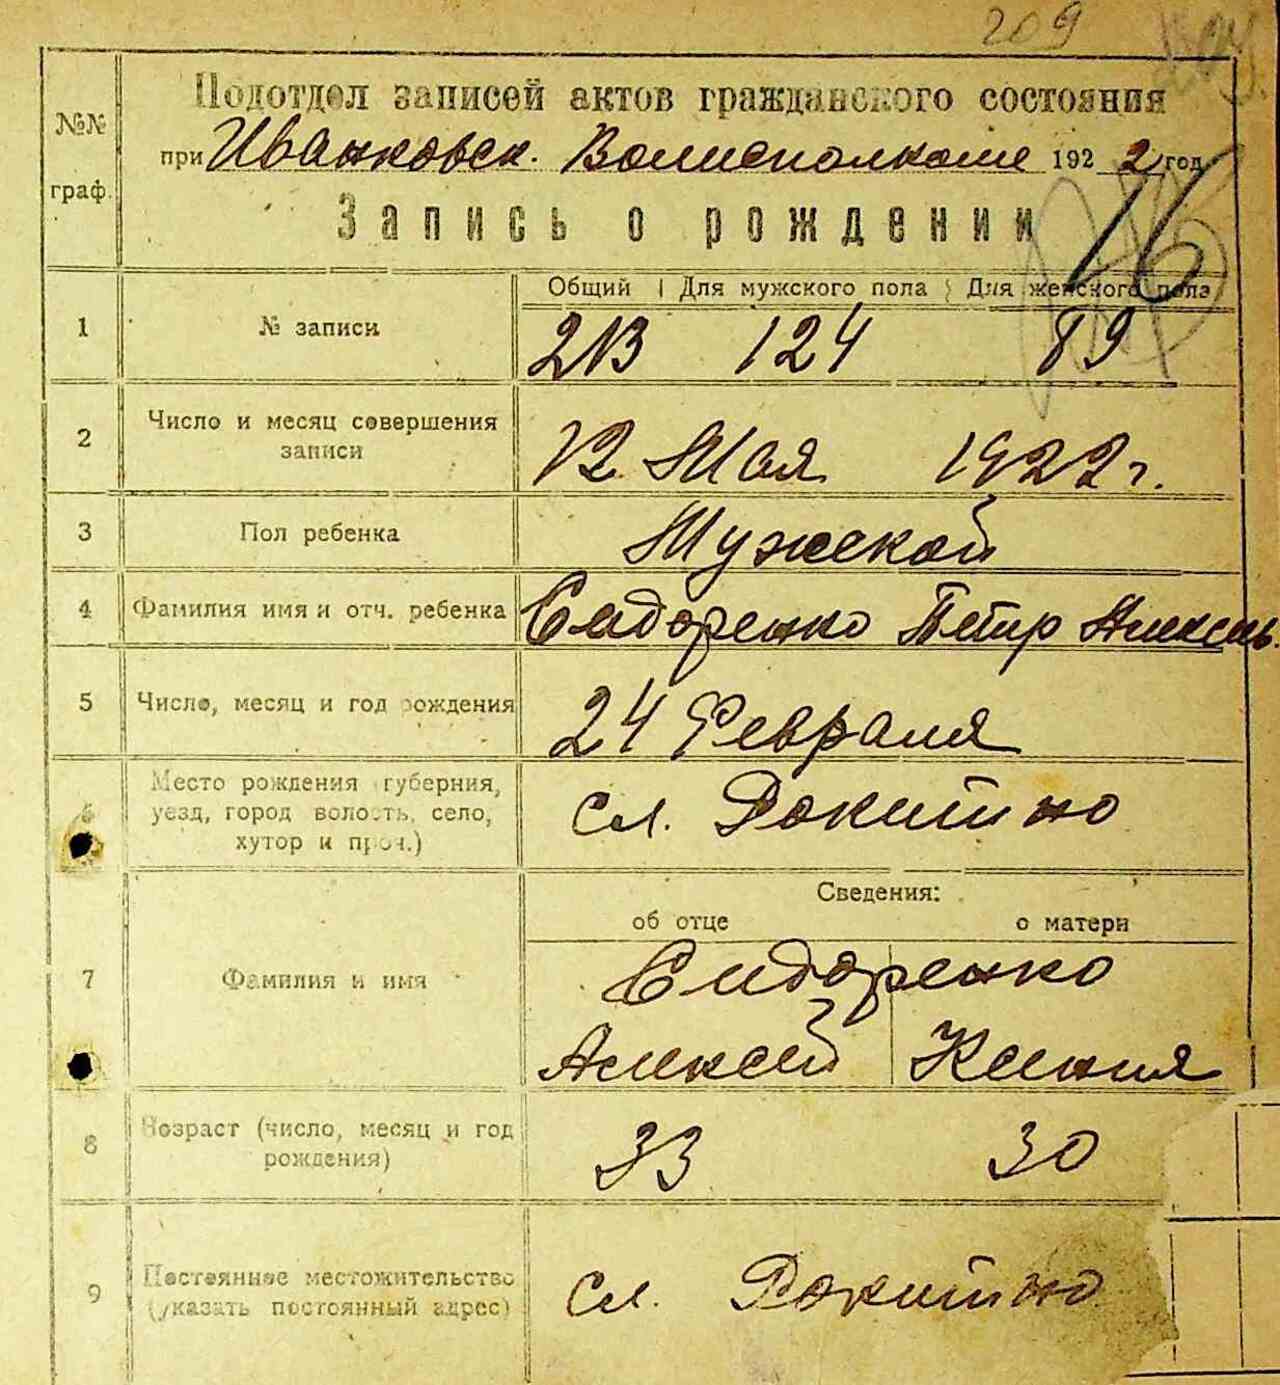 209
№№ граф.
Подотдел записей актов гражданского состояния
при Иванковск. Волисполкоме 1922 год
Запись о рождении
16
Общий Для мужского пола Для женского пола
1 № записи 213 124 89
2 Число и месяц совершения
записи 12 Мая 1922 г.
3 Пол ребенка Мужской
4 Фамилия имя и отч. ребенка Сидоренко Петр Алексеев.
5 Число, месяц и год рождения 24 Февраля
6 Место рождения (губерния,
уезд, город волость, село,
хутор и проч.) сл. Рокитно
Сведения:
об отце о матери
7 Фамилия и имя Сидоренко
Алексей Ксения
8 Возраст (число, месяц и год
рождения) 33 30
9 Постоянное местожительство
(указать постоянный адрес) сл. Рокитно